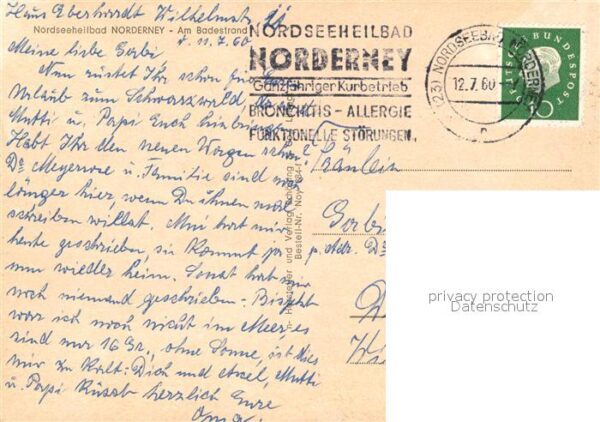 Haus Eberhardt Wilhelmstr
Nordseeheilbad NORDERNEY - Am Badestrand
11/7.60
Meine liebe Gabi
Nun rüstet Ihr schon
Urlaub zum Schwarzwald
Mutti u. Papi Euch
Habt Ihr den neuen Wagen schon?
Dr Meyerrose u. Familie sind noch
länger hier, wenn Du ihnen mal
schreiben willst. Mir hat
heute geschrieben, sie kommt ja
nun wieder heim. Sonst hat mir
noch niemand geschrieben. Bis jetzt
war ich noch nicht im Meer, es
sind nur 16 Gr., ohne Sonne, ist dies
mir zu kalt. Dich und Axel, Mutti
u. Papi küsst herzlich Eure
Oma.
NORDSEEHEILBAD
NORDERNEY
Ganzjähriger Kurbetrieb
BRONCHITIS - ALLERGIE
FUNKTIONELLE STÖRUNGEN
(23) NORDSEEBAD NORDERNEY
12.7.60
n
DEUTSCHE BUNDESPOST
10
Bestell-Nr. Noy
Fräulein
Gabi
p. Adr. Dr
privacy protection
Datenschutz